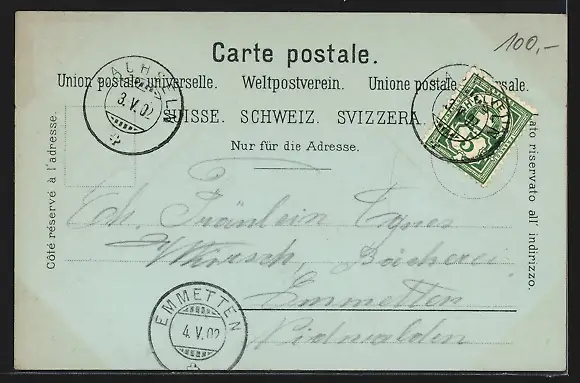 100,-
Carte postale.
Union postale universelle. Weltpostverein. Unione postale universale.
SUISSE. SCHWEIZ. SVIZZERA.
Nur für die Adresse.
Côté réservé à l'adresse.
Lato riservato all' indirizzo.
3.V.02
Fräulein Agnes
Bäckerei
Emmetten
Nidwalden
EMMETTEN
4.V.02